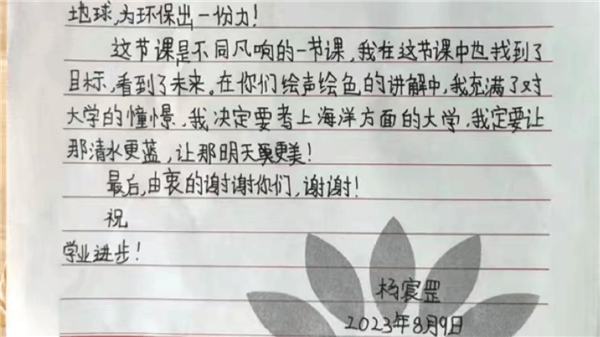 地球,为环保出一份力!
这节课是不同凡响的一节课,我在这节课中也找到了
目标,看到了未来。在你们绘声绘色的讲解中,我充满了对
大学的憧憬,我决定要考上海洋方面的大学,我定要让
那清水更蓝,让那明天更美!
最后,由衷的谢谢你们,谢谢!
祝
学业进步!
杨宸罡
2023年8月9日